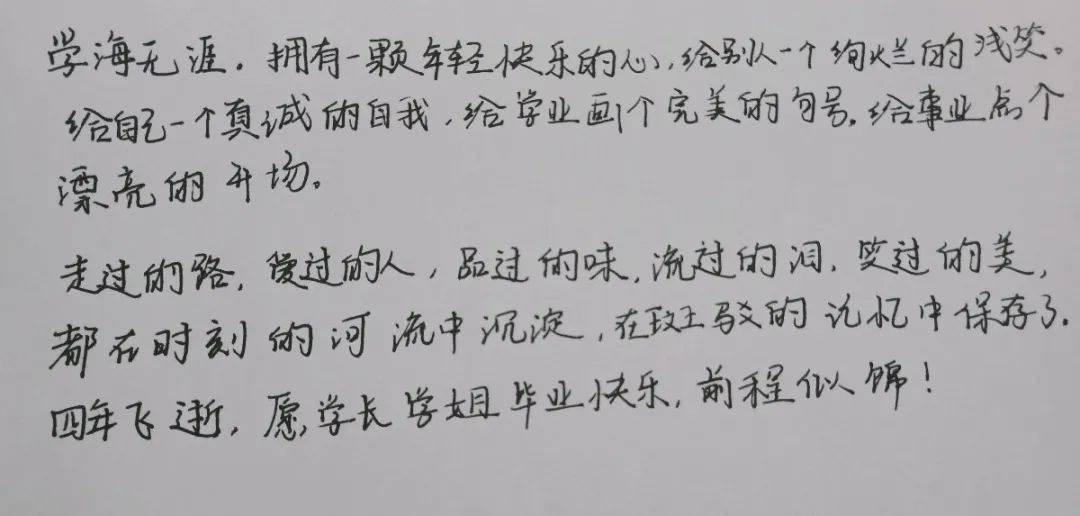 学海无涯。拥有一颗年轻快乐的心,给别人一个绚烂的浅笑。
给自己一个真诚的自我,给学业画个完美的句号。给事业点个
漂亮的开场。
走过的路,爱过的人,品过的味,流过的泪,笑过的美,
都在时刻的河流中沉淀,在斑驳的记忆中保存了。
四年飞逝,愿学长学姐毕业快乐,前程似锦!